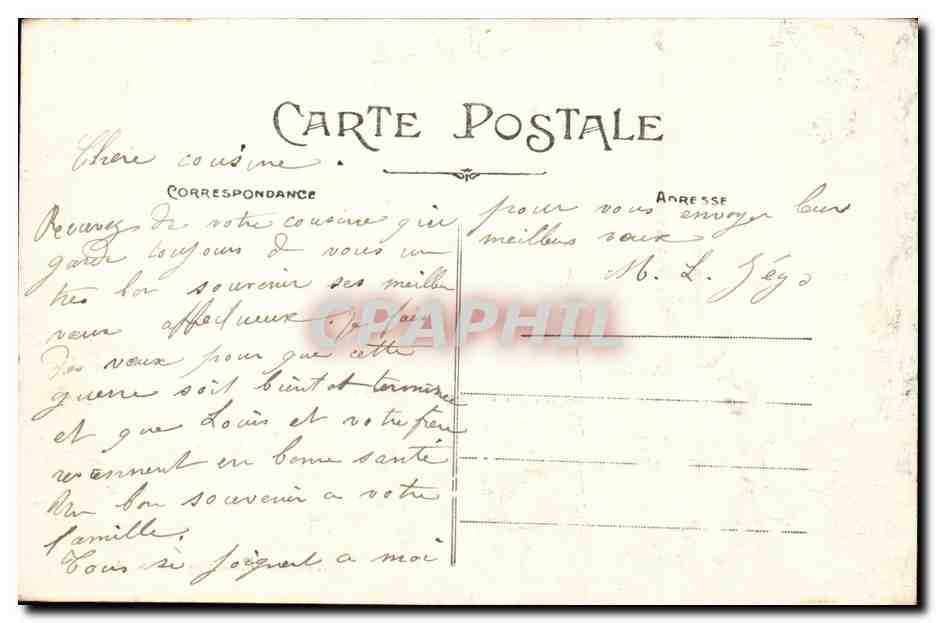 CARTE POSTALE
Chere cousine.
CORRESPONDANCE
ADRESSE
Recevez de votre cousine qui
garde toujours de vous un
tres bon souvenir ses meilleu
veux affectueux. Je fais
Des veux pour que cette
guerre soit bientot terminée
et que Louis et votre frere
reviennent en bonne santé
Un bon souvenir a votre
famille.
Tous se joignent a moi
pour vous envoyer leurs
meilleurs veux
M. L.
CPAPHIL